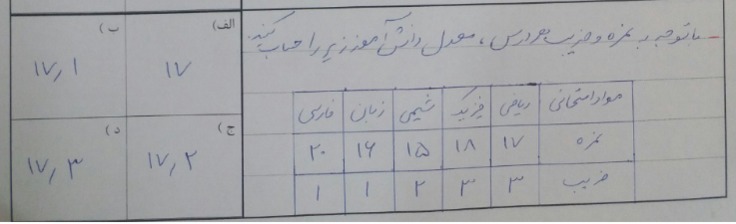 - با توجه به نمره و ضریب هر درس، معدل دانش آموز زیر را حساب کنید.
مواد امتحانی ریاضی فیزیک شیمی زبان فارسی
نمره ۱۷ ۱۸ ۱۵ ۱۶ ۲۰
ضریب ۳ ۳ ۲ ۱ ۱
الف) ۱۷
ب) ۱۷٫۱
ج) ۱۷٫۲
د) ۱۷٫۳